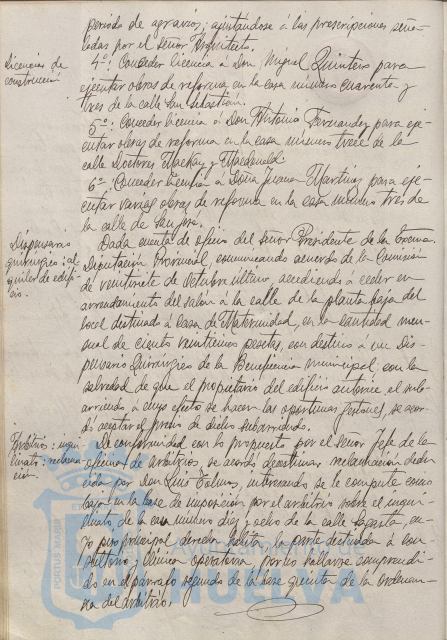 periodo de agravios; ajustándose á las prescripciones seña-
ladas por el señor Arquitecto.
Licencias de
construcción
4º: Conceder licencia á Don Miguel Quintero para
ejecutar obras de reforma en la casa número cuarenta y
tres de la calle San Sebastián.
5º: Conceder licencia á Don Antonio Fernandez para eje-
cutar obras de reforma en la casa número trece de la
calle Doctores Mackay y Macdonald.
6º: Conceder licencia á Doña Juana Martin para eje-
cutar varias obras de reforma en la casa número tres de
la calle de San José.
Dispensario
quirúrgico: al
quiler de edifi-
cio.
Dada cuenta de oficio del señor Presidente de la Excma.
Diputación Provincial, comunicando acuerdo de la Comisión
de veintisiete de Octubre último, accediendo á ceder en
arrendamiento del salón á la calle de la planta baja del
local destinado á casa de Maternidad, en la cantidad men-
sual de ciento veinticinco pesetas, con destino á un Dis-
pensario Quirúrgico de la Beneficencia municipal, con la
salvedad de que el propietario del edificio autorice el sub-
arriendo, á cuyo efecto se hacen las oportunas gestiones, se acor-
dó aceptar el precio de dicho subarriendo.
Arbitrio: inqui
linato: reclama
ción.
De conformidad con lo propuesto por el señor Jefe de la
oficina de arbitrios, se acordó desestimar reclamación dedu-
cida por Don Luis Tolmos, interesando se le compute como
baja en la base de imposición por el arbitrio sobre el inqui
linato, de la casa número diez y ocho de la calle Sagasta, cu-
yo piso principal derecha habita, la parte destinada á con-
sultorio y clínica operatoria, por no hallarse comprendi-
do en el párrafo segundo de la base quinta de la ordenan-
za del arbitrio.
PORTUS MARIS
Ayuntamiento de
HUELVA